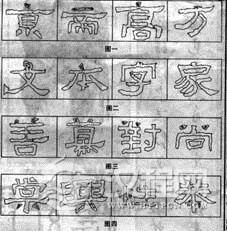 京 而 高 方
图一
文 本 字 家
图二
善 真 對 尚
图三
常 興
图四